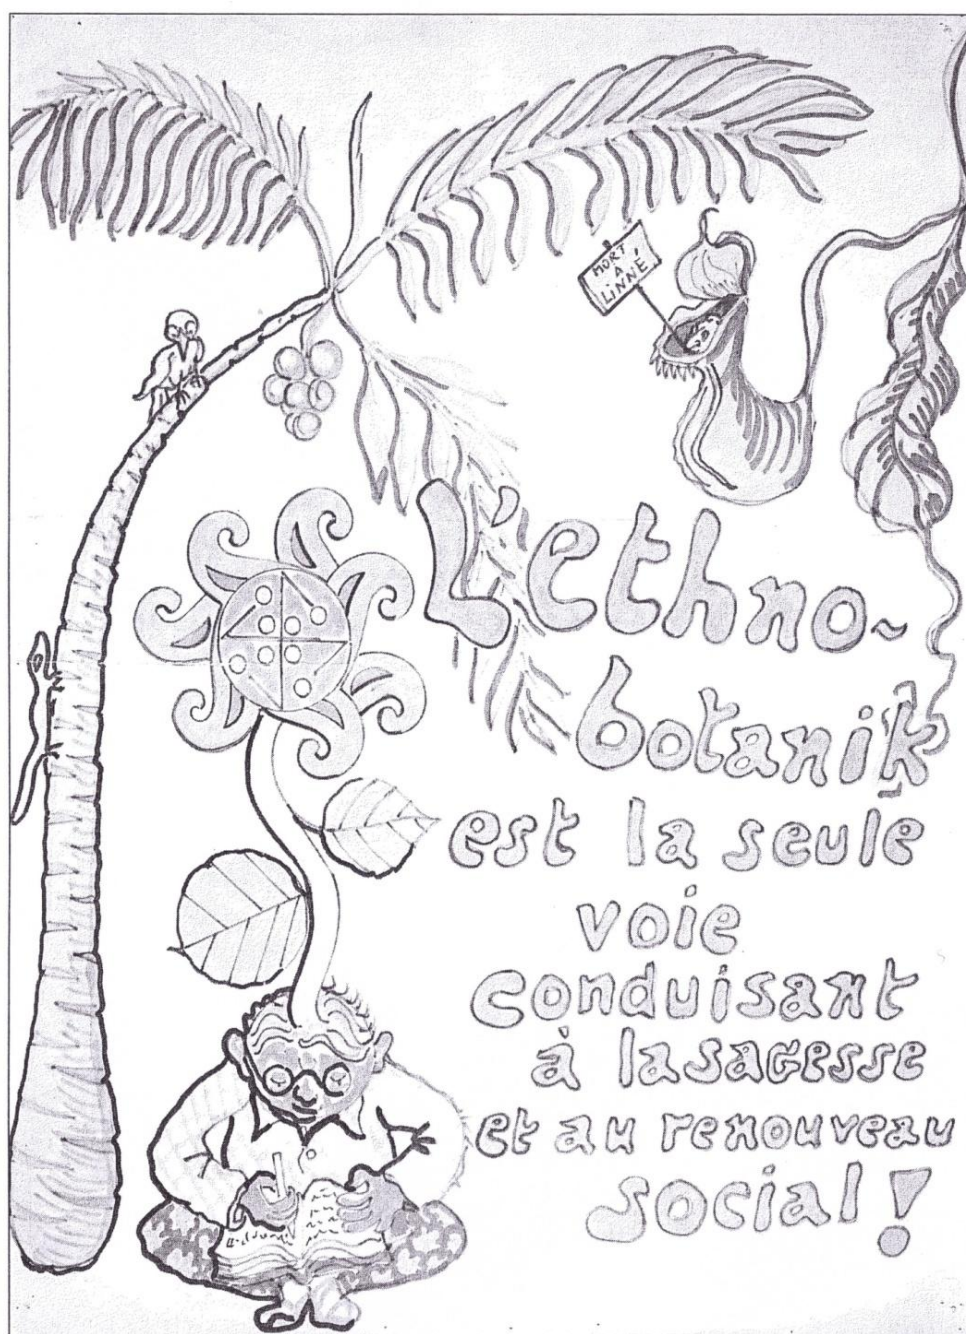 MORT
A
LiNNÉ!
L'ethno~
botanik
est la seule
voie
conduisant
à la sagesse
et au renouveau
social!